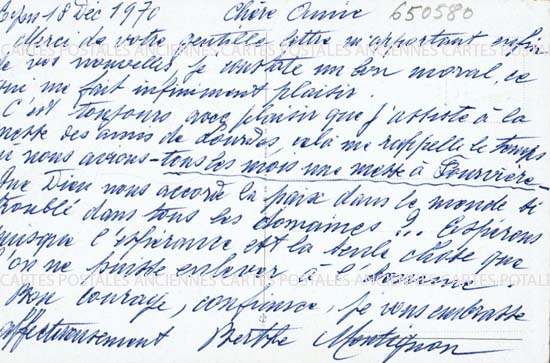 Lyon 18 Déc 1970 Chère Annie 650580
Merci de votre gentille lettre m'apportant enfin
de vos nouvelles, je constate un bon moral, ce
qui me fait infiniment plaisir.
C'est toujours avec plaisir que j'assiste à la
messe des amis de Lourdes, cela me rappelle le temps
où nous avions tous les mois une messe à Fourvière
Que Dieu nous accorde la paix dans le monde si
troublé dans tous les domaines ?.. Espérons
puisque l'espérance est la seule chose que
l'on ne puisse enlever à l'homme
Bon courage, confiance, je vous embrasse
affectueusement Berthe
CARTES POSTALES ANCIENNES